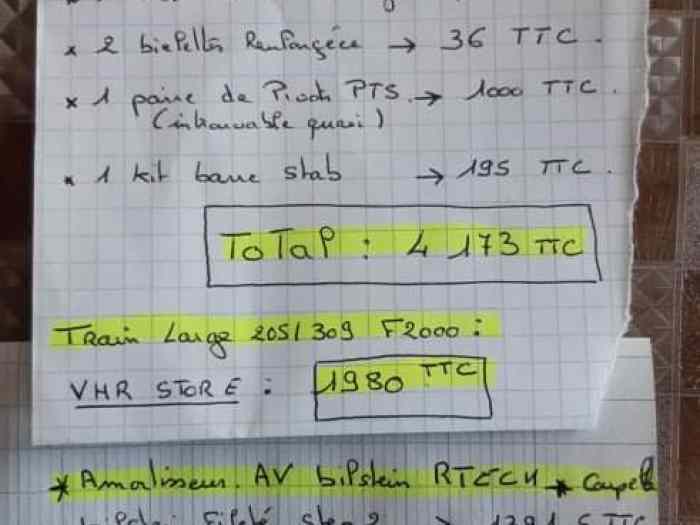 * 2 biellettes Renforcées → 36 TTC.
* 1 paire de Pivots PTS. → 1000 TTC.
(introuvable quasi)
* 1 kit barre stab → 195 TTC.
ToTaP : 4 173 TTC
TRain Large 205/309 F2000 :
VHR STORE : 1980 TTC
* Amortisseur AV bilstein RTECH * Coupelle